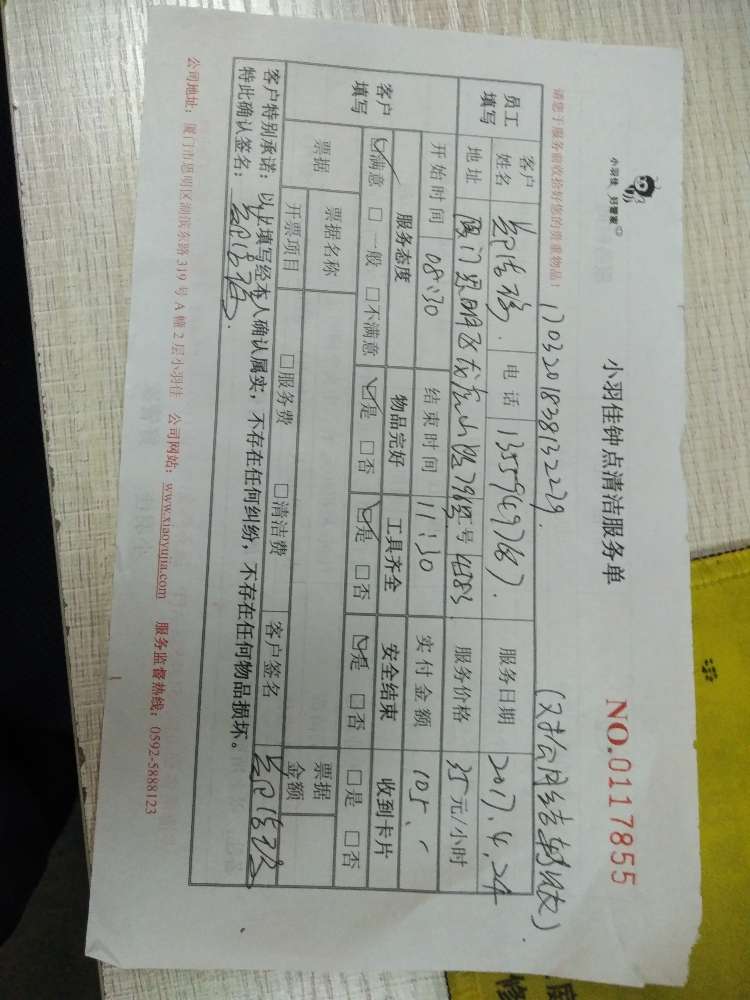 小羽佳 好管家
小羽佳钟点清洁服务单
NO.0117855
请您于服务前收拾好您的贵重物品!
1703201838132279.
员工填写 客户姓名 电话 服务日期 2017.4.24
地址 厦门思明区 服务价格 35元/小时
客户填写 开始时间 08:30 结束时间 11:30 实付金额 105.
服务态度 物品完好 工具齐全 安全结束 收到卡片
☑满意 □一般 □不满意 ☑是 □否 ☑是 □否 ☑是 □否 □是 □否
票据 票据名称 票据金额
开票项目 □服务费 □清洁费 客户签名
客户特别承诺:以上填写经本人确认属实,不存在任何纠纷,不存在任何物品损坏。
特此确认签名:
公司地址:厦门市思明区湖滨东路319号A幢2层小羽佳 公司网站:www.xiaoyujia.com 服务监督热线:0592-5888123